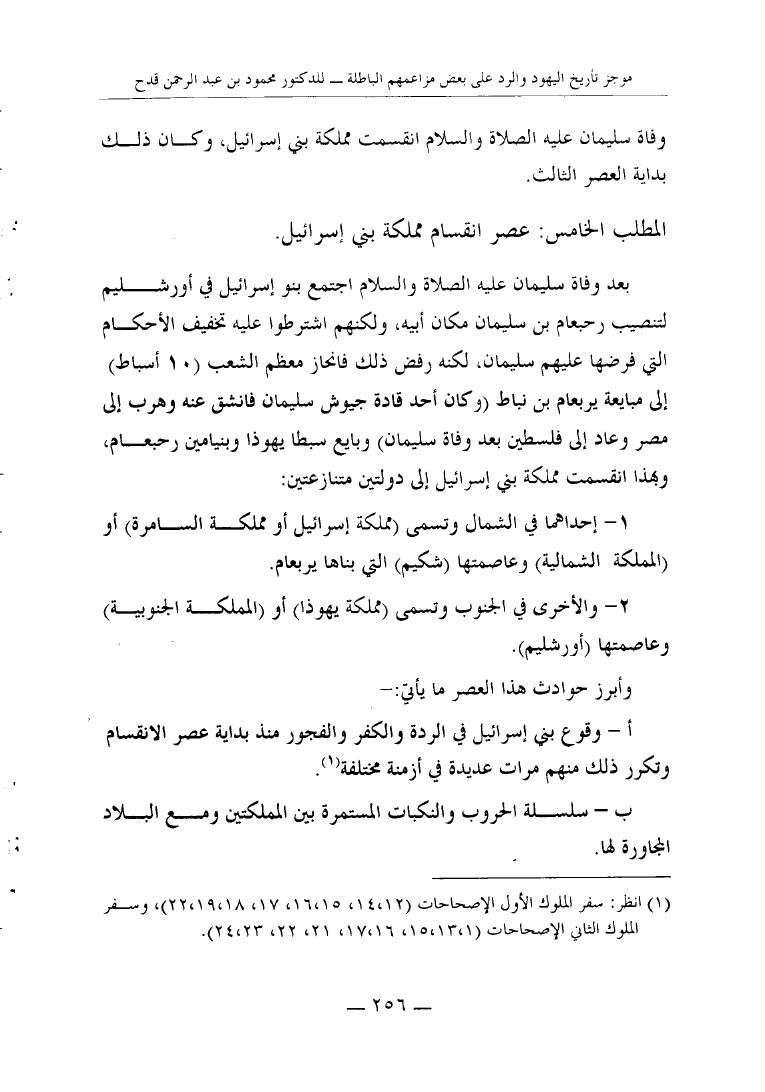 موجز تأريخ اليهود والرد على بعض مزاعمهم الباطلة — للدكتور محمود بن عبد الرحمن قدح
وفاة سليمان عليه الصلاة والسلام انقسمت مملكة بني إسرائيل، وكان ذلك
بداية العصر الثالث.
المطلب الخامس: عصر انقسام مملكة بني إسرائيل.
بعد وفاة سليمان عليه الصلاة والسلام اجتمع بنو إسرائيل في أورشليم
لتنصيب رحبعام بن سليمان مكان أبيه، ولكنهم اشترطوا عليه تخفيف الأحكام
التي فرضها عليهم سليمان، لكنه رفض ذلك فانحاز معظم الشعب (١٠ أسباط)
إلى مبايعة يربعام بن نباط (وكان أحد قادة جيوش سليمان فانشق عنه وهرب إلى
مصر وعاد إلى فلسطين بعد وفاة سليمان) وبايع سبطا يهوذا وبنيامين رحبعام،
وبهذا انقسمت مملكة بني إسرائيل إلى دولتين متنازعتين:
١- إحداهما في الشمال وتسمى (مملكة إسرائيل أو مملكة السامرة) أو
(المملكة الشمالية) وعاصمتها (شكيم) التي بناها يربعام.
٢- والأخرى في الجنوب وتسمى (مملكة يهوذا) أو (الملكة الجنوبية)
وعاصمتها (أورشليم).
وأبرز حوادث هذا العصر ما يأتي:-
أ - وقوع بني إسرائيل في الردة والكفر والفجور منذ بداية عصر الانقسام
وتكرر ذلك منهم مرات عديدة في أزمنة مختلفة(١).
ب - سلسلة الحروب والنكبات المستمرة بين المملكتين ومع البلاد
المجاورة لها.
(١) انظر: سفر الملوك الأول الإصحاحات (١٢،١٤، ١٥،١٦، ١٧، ١٨،١٩،٢٢)، وسفر
الملوك الثاني الإصحاحات (١،١٣،١٥، ١٦،١٧، ٢١، ٢٢، ٢٣،٢٤).
— ٢٥٦ —